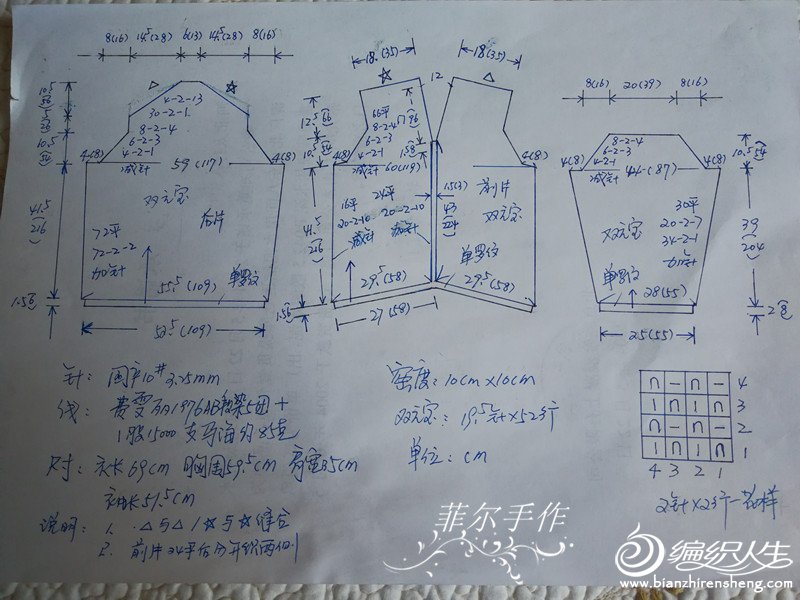 8(16) 14.5(28) 6(13) 14.5(28) 8(16)
△ ☆
4-2-13
30-2-1
8-2-4
6-2-3
4-2-1
减针
10.5
(54)
4(8) 59(117) 4(8)
双元宝 后片
72平
72-2-2
加针
41.5
(216)
55.5(109) 单罗纹
1.5(6)
52.5(109)
18(35) 18(35)
☆ △
12
66平
8-2-4
6-2-3
4-2-1
减针
12.5(66)
10.5(54)
4(8) 60(119) 4(8)
16平 24平
20-2-10 20-2-10
减针 加针
1.5(3)
43
(224)
前片
双元宝
单罗纹
41.5
(216)
29.5(58) 29.5(58)
1.5(6)
27(58)
8(16) 20(39) 8(16)
8-2-4
6-2-3
4-2-1
减针
10.5(54)
4(8) 44(87) 4(8)
双元宝
30平
20-2-7
34-2-1
加针
39
(204)
单罗纹
28(55)
2(8)
25(55)
针：国产10# 3.25mm
线：
1股15000支马海约85克
尺寸：衣长69cm 胸围59.5cm 肩宽35cm
袖长51.5cm
说明：1. △与△ / ☆与☆缝合
2. 前片
密度：10cm×10cm
双元宝：19.5针×52行
单位：cm
∩ — ∩ — 4
1 ∩ 1 ∩ 3
∩ — ∩ — 2
1 ∩ 1 ∩ 1
4 3 2 1
2针×2行一花样
菲尔手作
编织人生
www.bianzhirensheng.com